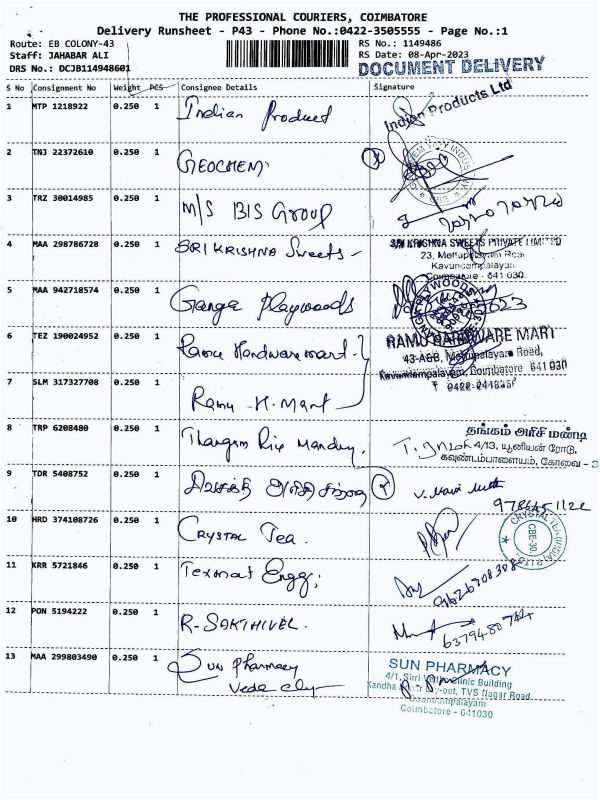 THE PROFESSIONAL COURIERS, COIMBATORE
Delivery Runsheet - P43 - Phone No.:0422-3505555 - Page No.:1
Route: EB COLONY-43 RS No.: 1149486
Staff: JAHABAR ALI RS Date: 08-Apr-2023
DRS No.: DCJB114948601 DOCUMENT DELIVERY
S No Consignment No Weight PCS Consignee Details Signature
1 MTP 1218922 0.250 1 Indian Product Indian Products Ltd
2 TNJ 22372610 0.250 1 GEOCHEM
3 TRZ 30014985 0.250 1 M/S BIS Group
4 MAA 298786728 0.250 1 SRI KRISHNA Sweets - SRI KRISHNA SWEETS PRIVATE LIMITED
23, Mettupalayam Road
Kavundampalayam
Coimbatore - 641 030.
5 MAA 942718574 0.250 1 Ganga Playwoods
6 TEZ 190024952 0.250 1 Ramu Hardwaremart - RAMU HARDWARE MART
43-A&B, Mettupalayam Road,
Kavundampalayam, Coimbatore 641 030
7 SLM 317327708 0.250 1 Ramu - H. Mart
8 TRP 6208480 0.250 1 Thangam Rice Mandy தங்கம் அரிசி மண்டி
4/13, யூனியன் ரோடு,
கவுண்டம்பாளையம், கோவை - 3
9 TDR 5408752 0.250 1 அரிசி
10 HRD 374108726 0.250 1 CRYSTAL Tea. CRYSTAL TEA (INDIA) P LTD CBE-30.
11 KRR 5721846 0.250 1 Texmat Engg;
12 PON 5194222 0.250 1 R-SAKTHIVEL. 6379480742
13 MAA 299803490 0.250 1 Sun Pharmacy SUN PHARMACY
4/1, Clinic Building
Kandha Lay-out, TVS Nagar Road
Coimbatore - 641030